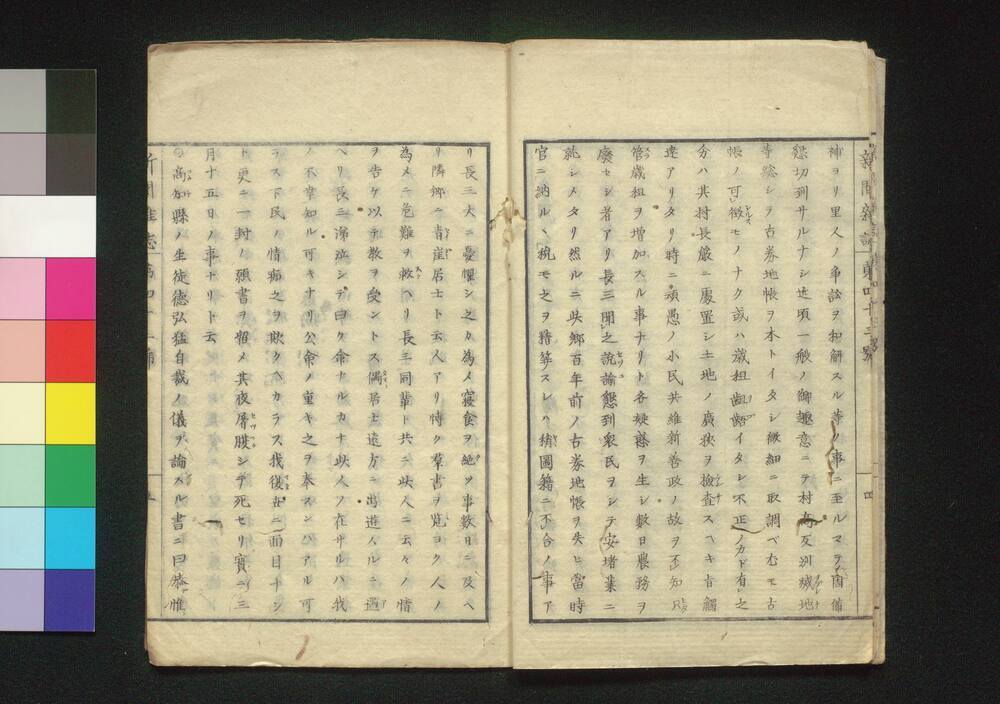 新聞雜誌 第四十三號 四
神ヨリ里人ノ爭訟ヲ和解スル等ノ事ニ至ルマテ備
懇切到サルナシ近頃一般ノ御趣意ニテ村高反別壊地
等總シテ古券地帳ヲ本トイタシ微細ニ取調ベむモ古
帳ノ可徴モノナク或ハ歳租齟齬イタシ不正ノカド有之
分ハ其村長嚴ニ處置シ土地ノ廣狹ヲ檢査スヘキ旨觸
達アリタリ時ニ頑愚ノ小民共維新善政ノ故ヲ不知
管歳租ヲ增加スル事ナリト各疑惑ヲ生シ數日農務ヲ
廢セシ者アリ長三聞之說諭懇到衆民ヲシテ安堵業ニ
就シメタリ然ルニ此鄉百年前ノ古券地帳ヲ失ヒ當時
官ニ納ル丶税モ之ヲ精筭スレハ圖籍ニ不合ノ事ア
リ長三大ニ憂懼シ之カ為メ寢食ヲ絕ツ事數日ニ及ヘ
リ隣鄉ニ青崖居士ト云人アリ博ク群書ヲ覽ヨク人ノ
為メニ危難ヲ救ヘリ長三同輩ト共ニ此人ニ云々ノ情
ヲ告ケ以テ教ヲ受ントス偶居士遠方ニ出遊スルニ遇
ヘリ長三涕泣シテ曰ク命ナルカナ此人ノ在サルハ我
ノ不幸知ル可キナリ公命ノ重キ之ヲ奉スンハアル可
ラス下民ノ情痴之ヲ欺クヘカラス我復世ニ面目ナシ
ト更ニ一封ノ願書ヲ留メ其夜屠腹シテ死セリ實ニ三
月十五日ノ事ナリト云
○高知縣ノ生徒德弘猛自裁ノ儀ヲ論スル書ニ曰恭惟